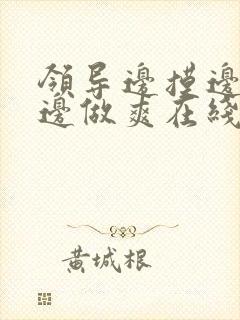 領导邊摸邊
邊做爽在綫
黄城根